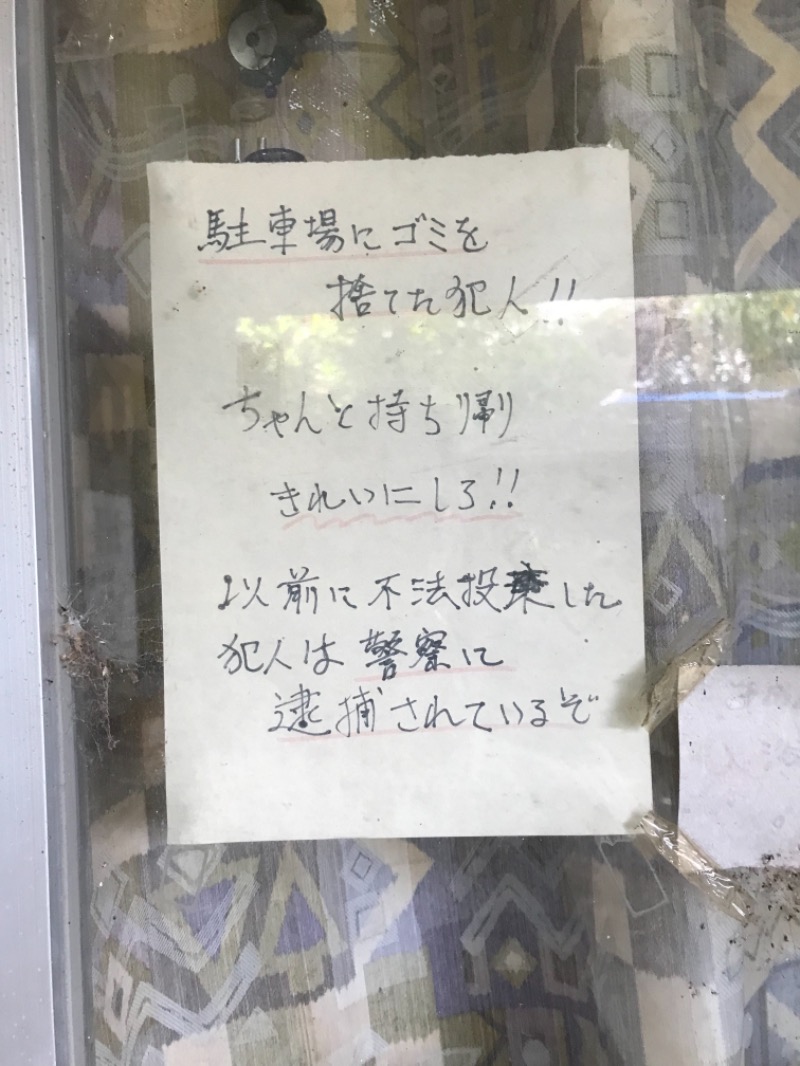 駐車場にゴミを
捨てた犯人!!
ちゃんと持ち帰り
きれいにしろ!!
以前に不法投棄した
犯人は警察に
逮捕されているぞ